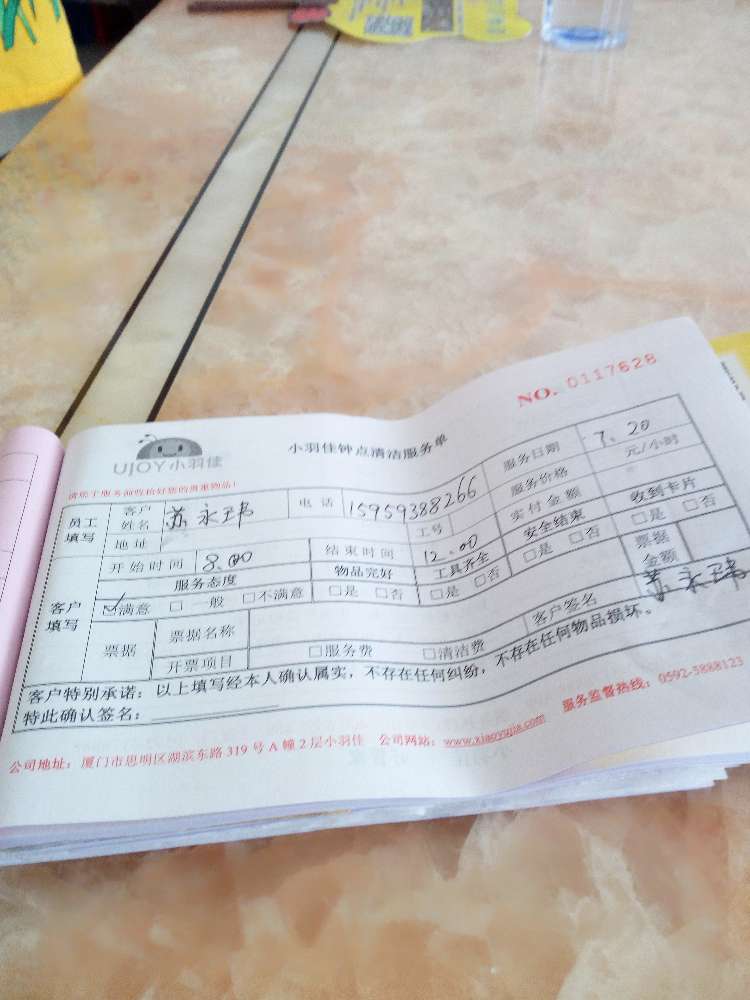 NO. 0117628
UJOY小羽佳
小羽佳钟点清洁服务单
请您于服务前收拾好您的贵重物品！
员工填写 客户姓名 苏永玮 电话 15959388266 服务日期 7.20
地址 工号 服务价格 元/小时
开始时间 8.00 结束时间 12.00 实付金额
客户填写 服务态度 物品完好 工具齐全 安全结束 收到卡片
☑满意 □一般 □不满意 □是 □否 □是 □否 □是 □否 □是 □否
票据 票据名称 票据金额
开票项目 □服务费 □清洁费 客户签名 苏永玮
客户特别承诺：以上填写经本人确认属实，不存在任何纠纷，不存在任何物品损坏。
特此确认签名：
公司地址：厦门市思明区湖滨东路319号A幢2层小羽佳 公司网站：www.xiaoyujia.com 服务监督热线：0592-5888123